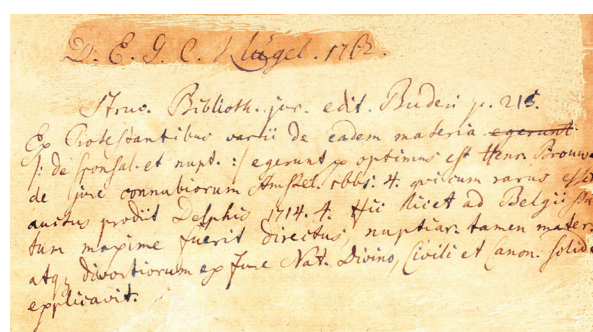 D. E. G. C. Klügel. 1762.
Struv. Biblioth. jur. edit. Buderi p. 215.
Ex Protestantibus varii de eadem materia egerunt
/: de sponsal. et nupt. :/ egerunt optimus est Henr. Brouw
de jure connubiorum Amstel. 1661. 4. qui cum rarus esset
auctus prodiit Delphis 1714. 4. Hic licet ad Belgii sta
tum maxime fuerit directus, nuptiar. tamen mater.
atq; divortiorum ex Jure Nat. Divino, Civili et Canon. solide
explicavit.